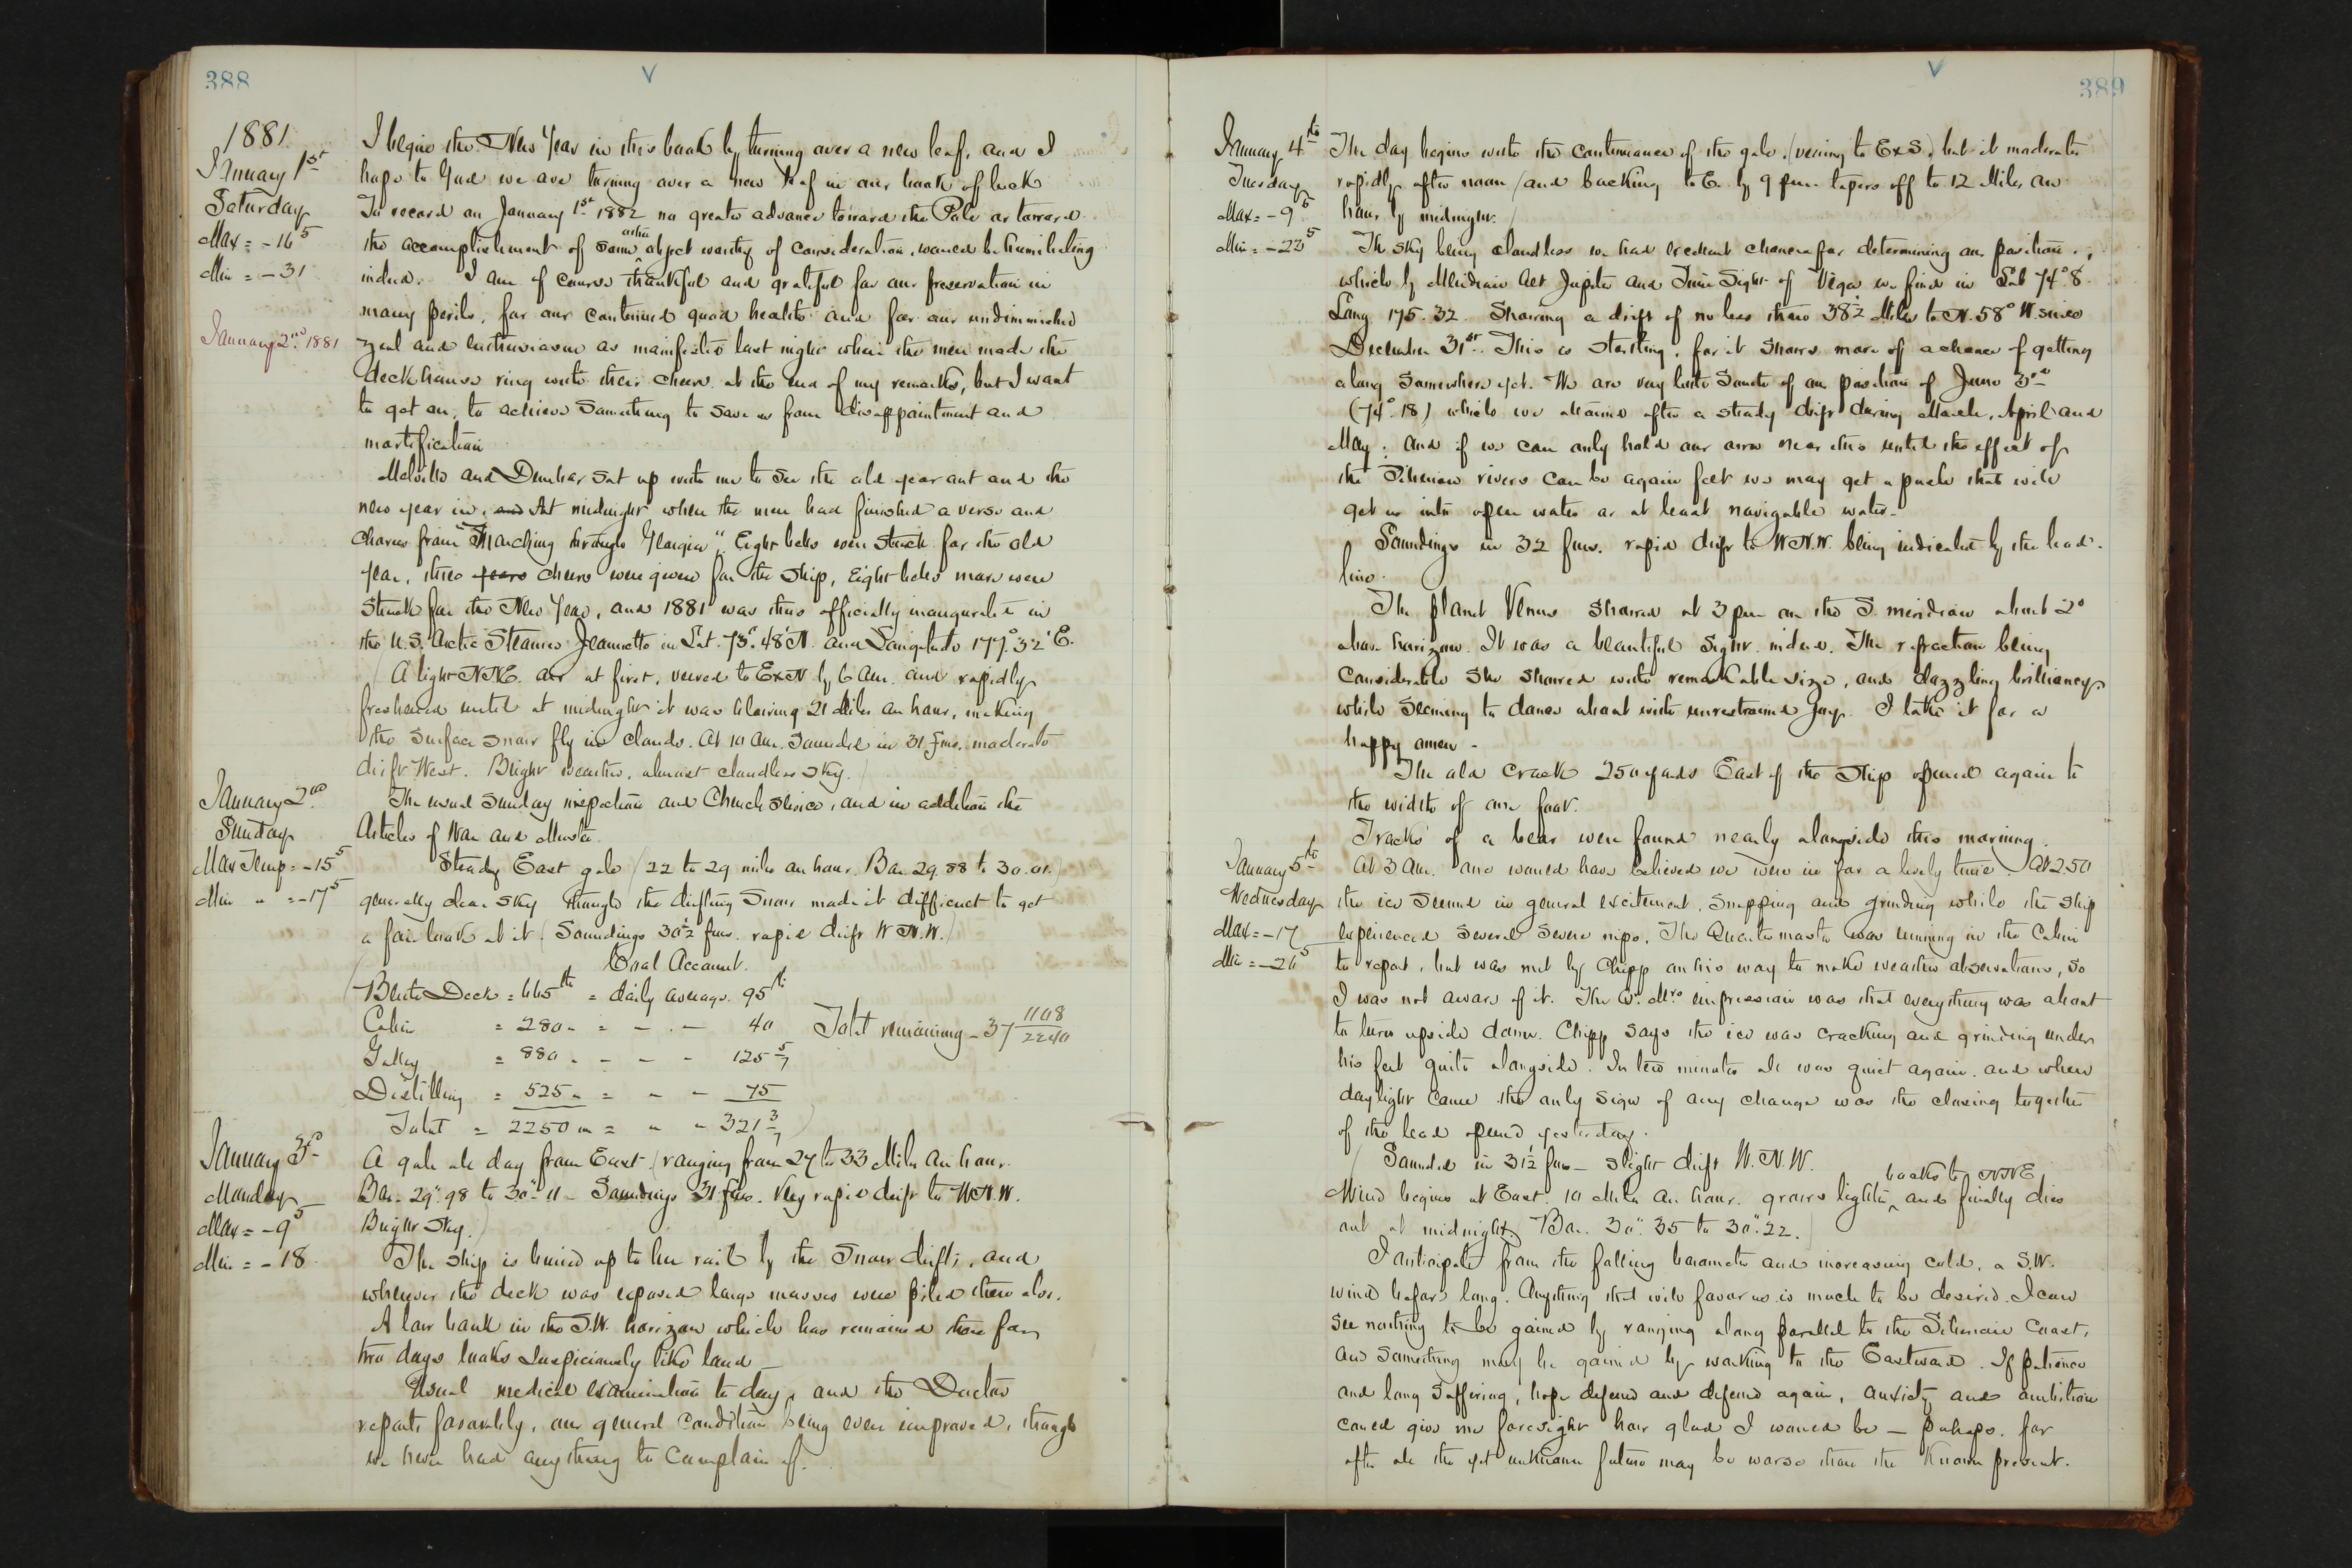 388
1881
January 1st
Saturday
Max = -16 5
Min = -31
January 2nd 1881
I begin the New Year in this book by turning over a new leaf, and I
hope to God we are turning over a new leaf in our book of luck
To record on January 1st 1882 no greater advance toward the Pole or toward
the accomplishment of some other object worthy of consideration, would be humiliating
indeed. I am of course thankful and grateful for our preservation in
many perils, for our continued good health and for our undiminished
zeal and enthusiasm as manifested last night when the men made the
deck house ring with their cheers at the end of my remarks, but I want
to get on, to achieve something to save us from disappointment and
mortification
Melville and Dunbar sat up with me to see the old year out and the
new year in, and At midnight when the men had finished a verse and
chorus from "Marching through Georgia" Eight bells were struck for the old
year, three years cheers were given for the ship, Eight bells more were
struck for the New Year, and 1881 was thus officially inaugurated in
the U.S. Arctic Steamer Jeannette in Lat. 73°.48' N. and Longitude 177°.32' E.
(A light NNE. air at first, veered to ExN by 6 Am. and rapidly
freshened until at midnight it was blowing 21 Miles an hour, making
the surface snow fly in clouds. At 10 Am. Sounded in 31 fms. moderate
drift West. Bright weather, almost cloudless sky.)
January 2nd
Sunday
Max Temp = -15 5
Min " = -17 5
The usual Sunday inspection and Church Service, and in addition the
Articles of War and Muster.
Steady East gale (22 to 29 miles an hour. Bar 29.88 to 30.01.)
generally clear sky though the drifting snow made it difficult to get
a fair look at it. (Soundings 30½ fms. rapid drift W N.W.)
Coal Account.
(Berth Deck = 665 lb = daily average. 95 lb
Cabin = 280 " = " - 40
Galley = 880 " - - - 125 5/7
Distilling = 525 " = " - 75
Total = 2250 " = " " 321 3/7)
Total remaining - 37 1108/2240
January 3d
Monday
Max = -9 5
Min = -18
A gale all day from East (ranging from 27 to 33 Miles an hour.
Bar. 29".98 to 30".11 - Soundings 31 fms. Very rapid drift to W N.W.
Bright sky.)
The ship is buried up to her rail by the snow drifts, and
wherever the deck was exposed large masses were piled there also.
A low bank in the S.W. horizon which has remained there for
two days looks suspiciously like land
Usual medical examination to day, and the Doctor
reports favorably, our general condition being even improved, though
we never had anything to complain of.
389
January 4th
Tuesday
Max = -9 5
Min = -23 5
The day begins with the continuance of the gale, (veering to ExS) but it moderates
rapidly after noon (and backing to E. by 9 pm tapers off to 12 Miles an
hour by midnight.)
The sky being cloudless we had excellent chances for determining our position,
which by Meridian Alt Jupiter and Time Sight of Vega we find in Lat 74°.8
Long 175.32. Showing a drift of no less than 38½ Miles to N. 58° W. since
December 31st. This is startling, for it shows more of a chance of getting
along somewhere yet. We are very little South of our position of June 3rd
(74°.18) which we attained after a steady drift during March, April and
May; and if we can only hold our own near this until the effect of
the Siberian rivers can be again felt we may get a push that will
get us into open water or at least navigable water.
Soundings in 32 fms. rapid drift to W N.W. being indicated by the lead
line.
The planet Venus showed at 3 pm on the S. meridian about 2°
above horizon. It was a beautiful sight indeed. The refraction being
considerable she showed with remarkable size, and dazzling brilliancy
while seeming to dance about with unrestrained joy. I take it for a
happy omen -
The old crack 250 yards East of the Ship opened again to
the width of one foot.
Tracks of a bear were found nearly alongside this morning.
January 5th
Wednesday
Max = -17
Min = -26 5
At 3 Am. one would have believed we were in for a lively time. At 2.50
the ice seemed in general excitement, snapping and grinding while the ship
experienced several severe nips. The Quartermaster was running in the Cabin
to report, but was met by Chipp on his way to make weather observations, so
I was not aware of it. The Qr. Mrs impression was that everything was about
to turn upside down. Chipp says the ice was cracking and grinding under
his feet quite alongside. In ten minutes all was quiet again, and when
daylight came the only sign of any change was the closing together
of the lead opened yesterday.
(Sounded in 31½ fms - slight drift W. N.W.
Wind begins at East. 10 Miles an hour, grows lighter, backs to NNE and finally dies
out at midnight. Bar. 30".35 to 30".22.)
I anticipate from the falling barometer and increasing cold, a S.W.
wind before long. Anything that will favor us is much to be desired. I can
see nothing to be gained by ranging along parallel to the Siberian Coast,
and something may be gained by working to the Eastward. If patience
and long suffering, hope deferred and deferred again, anxiety and ambition
could give me foresight how glad I would be - perhaps, for
after all the yet unknown future may be worse than the known present.